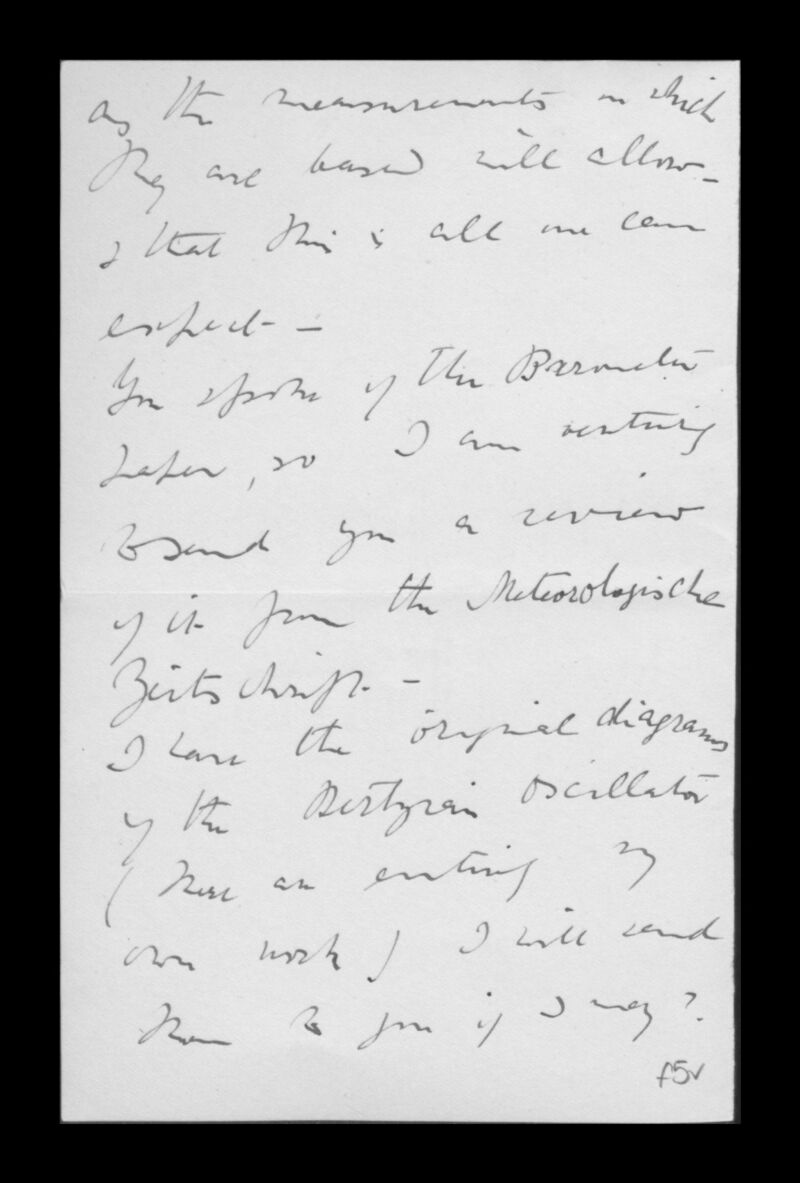 as the measurements on which
they are based will allow –
& that this is all one can
expect – –
You spoke of the Barometer
paper, so I am venturing
to send you a review
of it from the Meteorologische
Zeitschrift. –
I have the original diagrams
of the Hertzian Oscillator
( these are entirely my
own work ) I will send
them to you if I may ?.
f5v